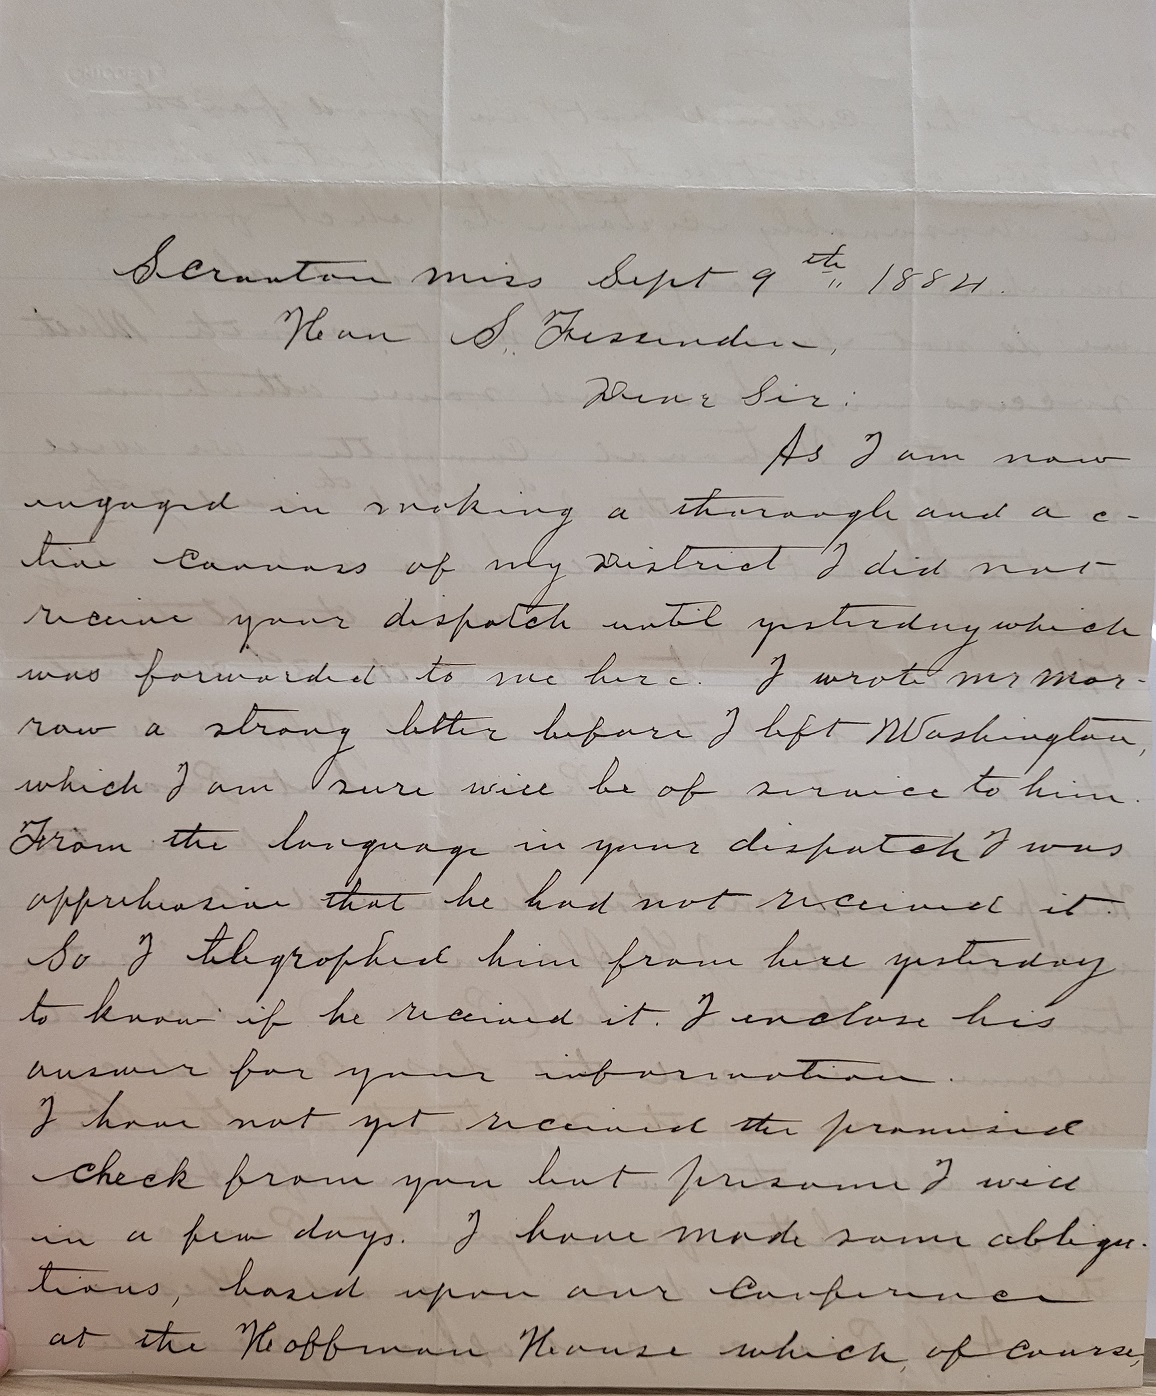 Scranton Miss Sept 9th 1884.
Hon S. Fessenden,
Dear Sir:
As I am now
engaged in making a thorough and ac-
tive canvass of my District I did not
receive your dispatch until yesterday which
was forwarded to me here. I wrote Mr Mor-
row a strong letter before I left Washington,
which I am sure will be of service to him.
From the language in your dispatch I was
apprehensive that he had not received it.
So I telegraphed him from here yesterday
to know if he received it. I enclose his
answer for your information.
I have not yet received the promised
check from you but presume I will
in a few days. I have made some obliga-
tions, based upon our Conference
at the Hoffman House which, of course,